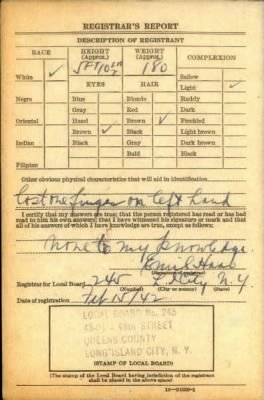 REGISTRAR'S REPORT
DESCRIPTION OF REGISTRANT
RACE HEIGHT (Approx.) WEIGHT (Approx.) COMPLEXION
White ✓ 5 FT 10 in 180 Sallow
EYES HAIR Light ✓
Negro Blue Blonde Ruddy
Gray Red Dark
Oriental Hazel Brown ✓ Freckled
Brown ✓ Black Light brown
Indian Black Gray Dark brown
Bald Black
Filipino
Other obvious physical characteristics that will aid in identification
Lost one finger on left hand
I certify that my answers are true; that the person registered has read or has had
read to him his own answers; that I have witnessed his signature or mark and that
all of his answers of which I have knowledge are true, except as follows:
None to my knowledge
Emil
(Signature of registrar)
Registrar for Local Board 245 City N Y
(Number) (City or county) (State)
Date of registration Feb 15/42
LOCAL BOARD No. 245
48TH STREET
QUEENS COUNTY
LONG ISLAND CITY, N. Y.
(STAMP OF LOCAL BOARD)
(The stamp of the Local Board having jurisdiction of the registrant
shall be placed in the above space)